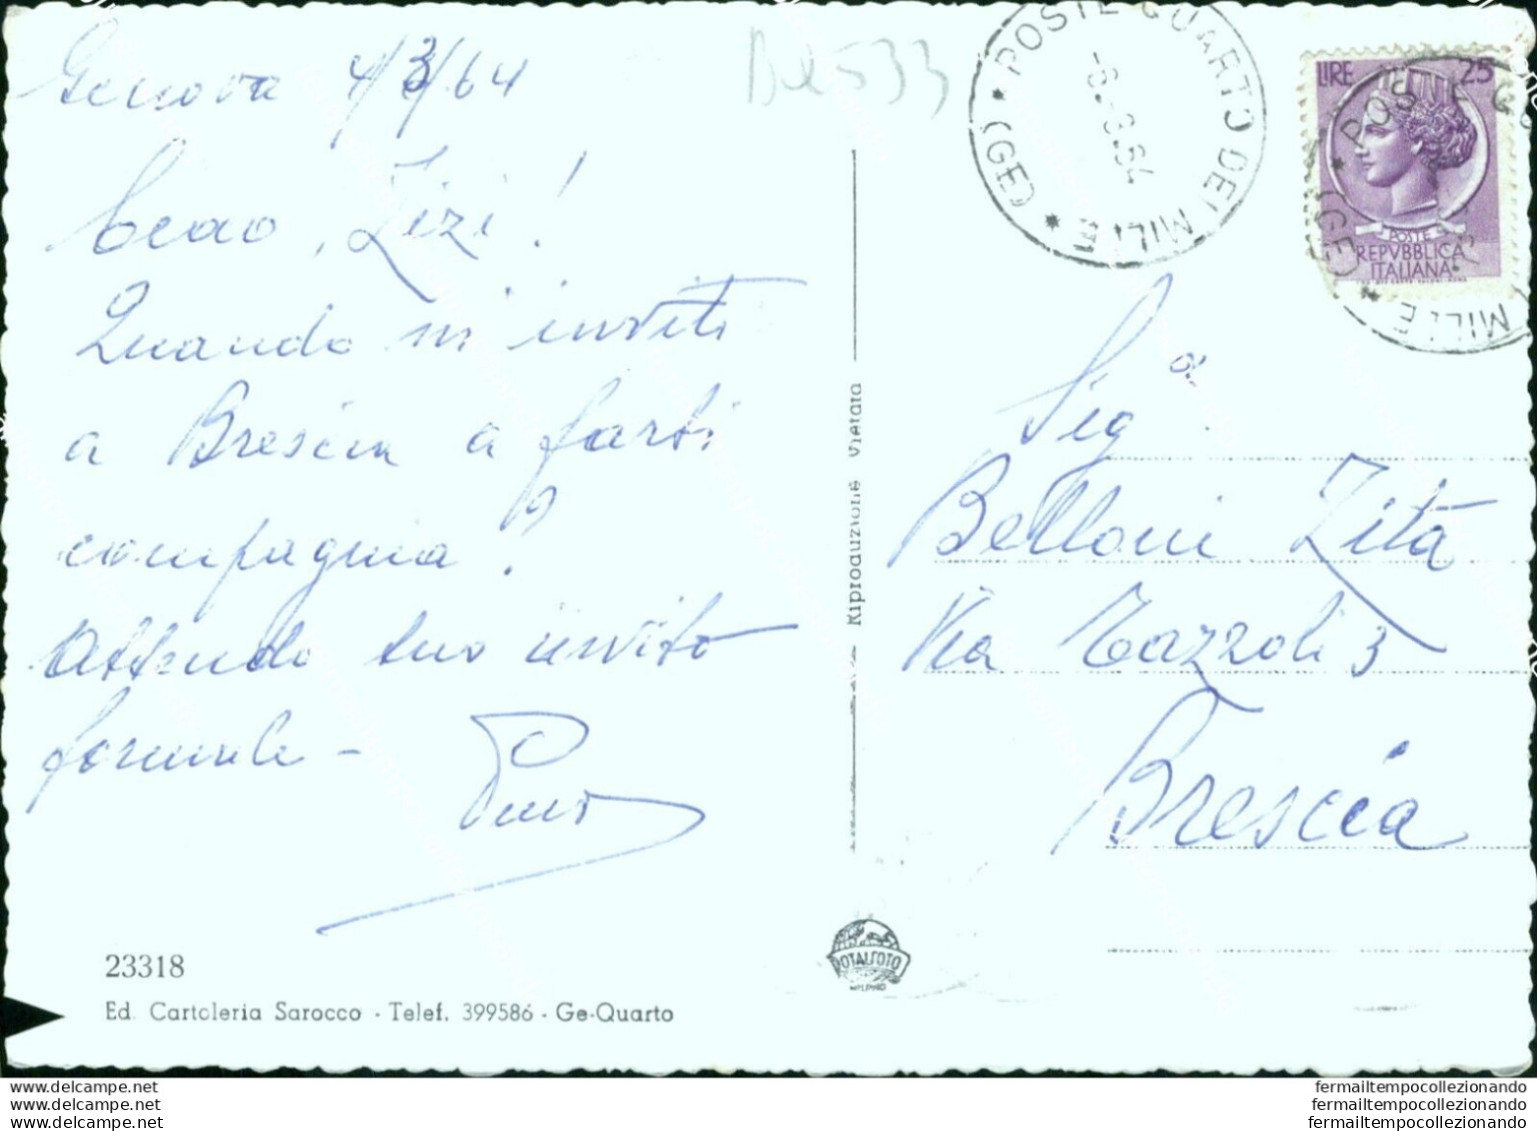 Genova 4/3/64
Be533
Ciao, Zizi!
Quando m'inviti
a Brescia a farti
compagnia?
Attendo tuo invito
formale -
23318
Ed. Cartoleria Sarocco - Telef. 399586 - Ge-Quarto
Riproduzione vietata
* POSTE QUARTO DEI MILLE * (GE)
-6.-3.64
LIRE 25
POSTE
REPVBBLICA
ITALIANA
MILLE * (GE) * POSTE
Sig.a
Belloni Zita
Via Tazzoli 3
Brescia
ROTALFOTO
MILANO
www.delcampe.net
www.delcampe.net
www.delcampe.net
fermailtempocollezionando
fermailtempocollezionando
fermailtempocollezionando